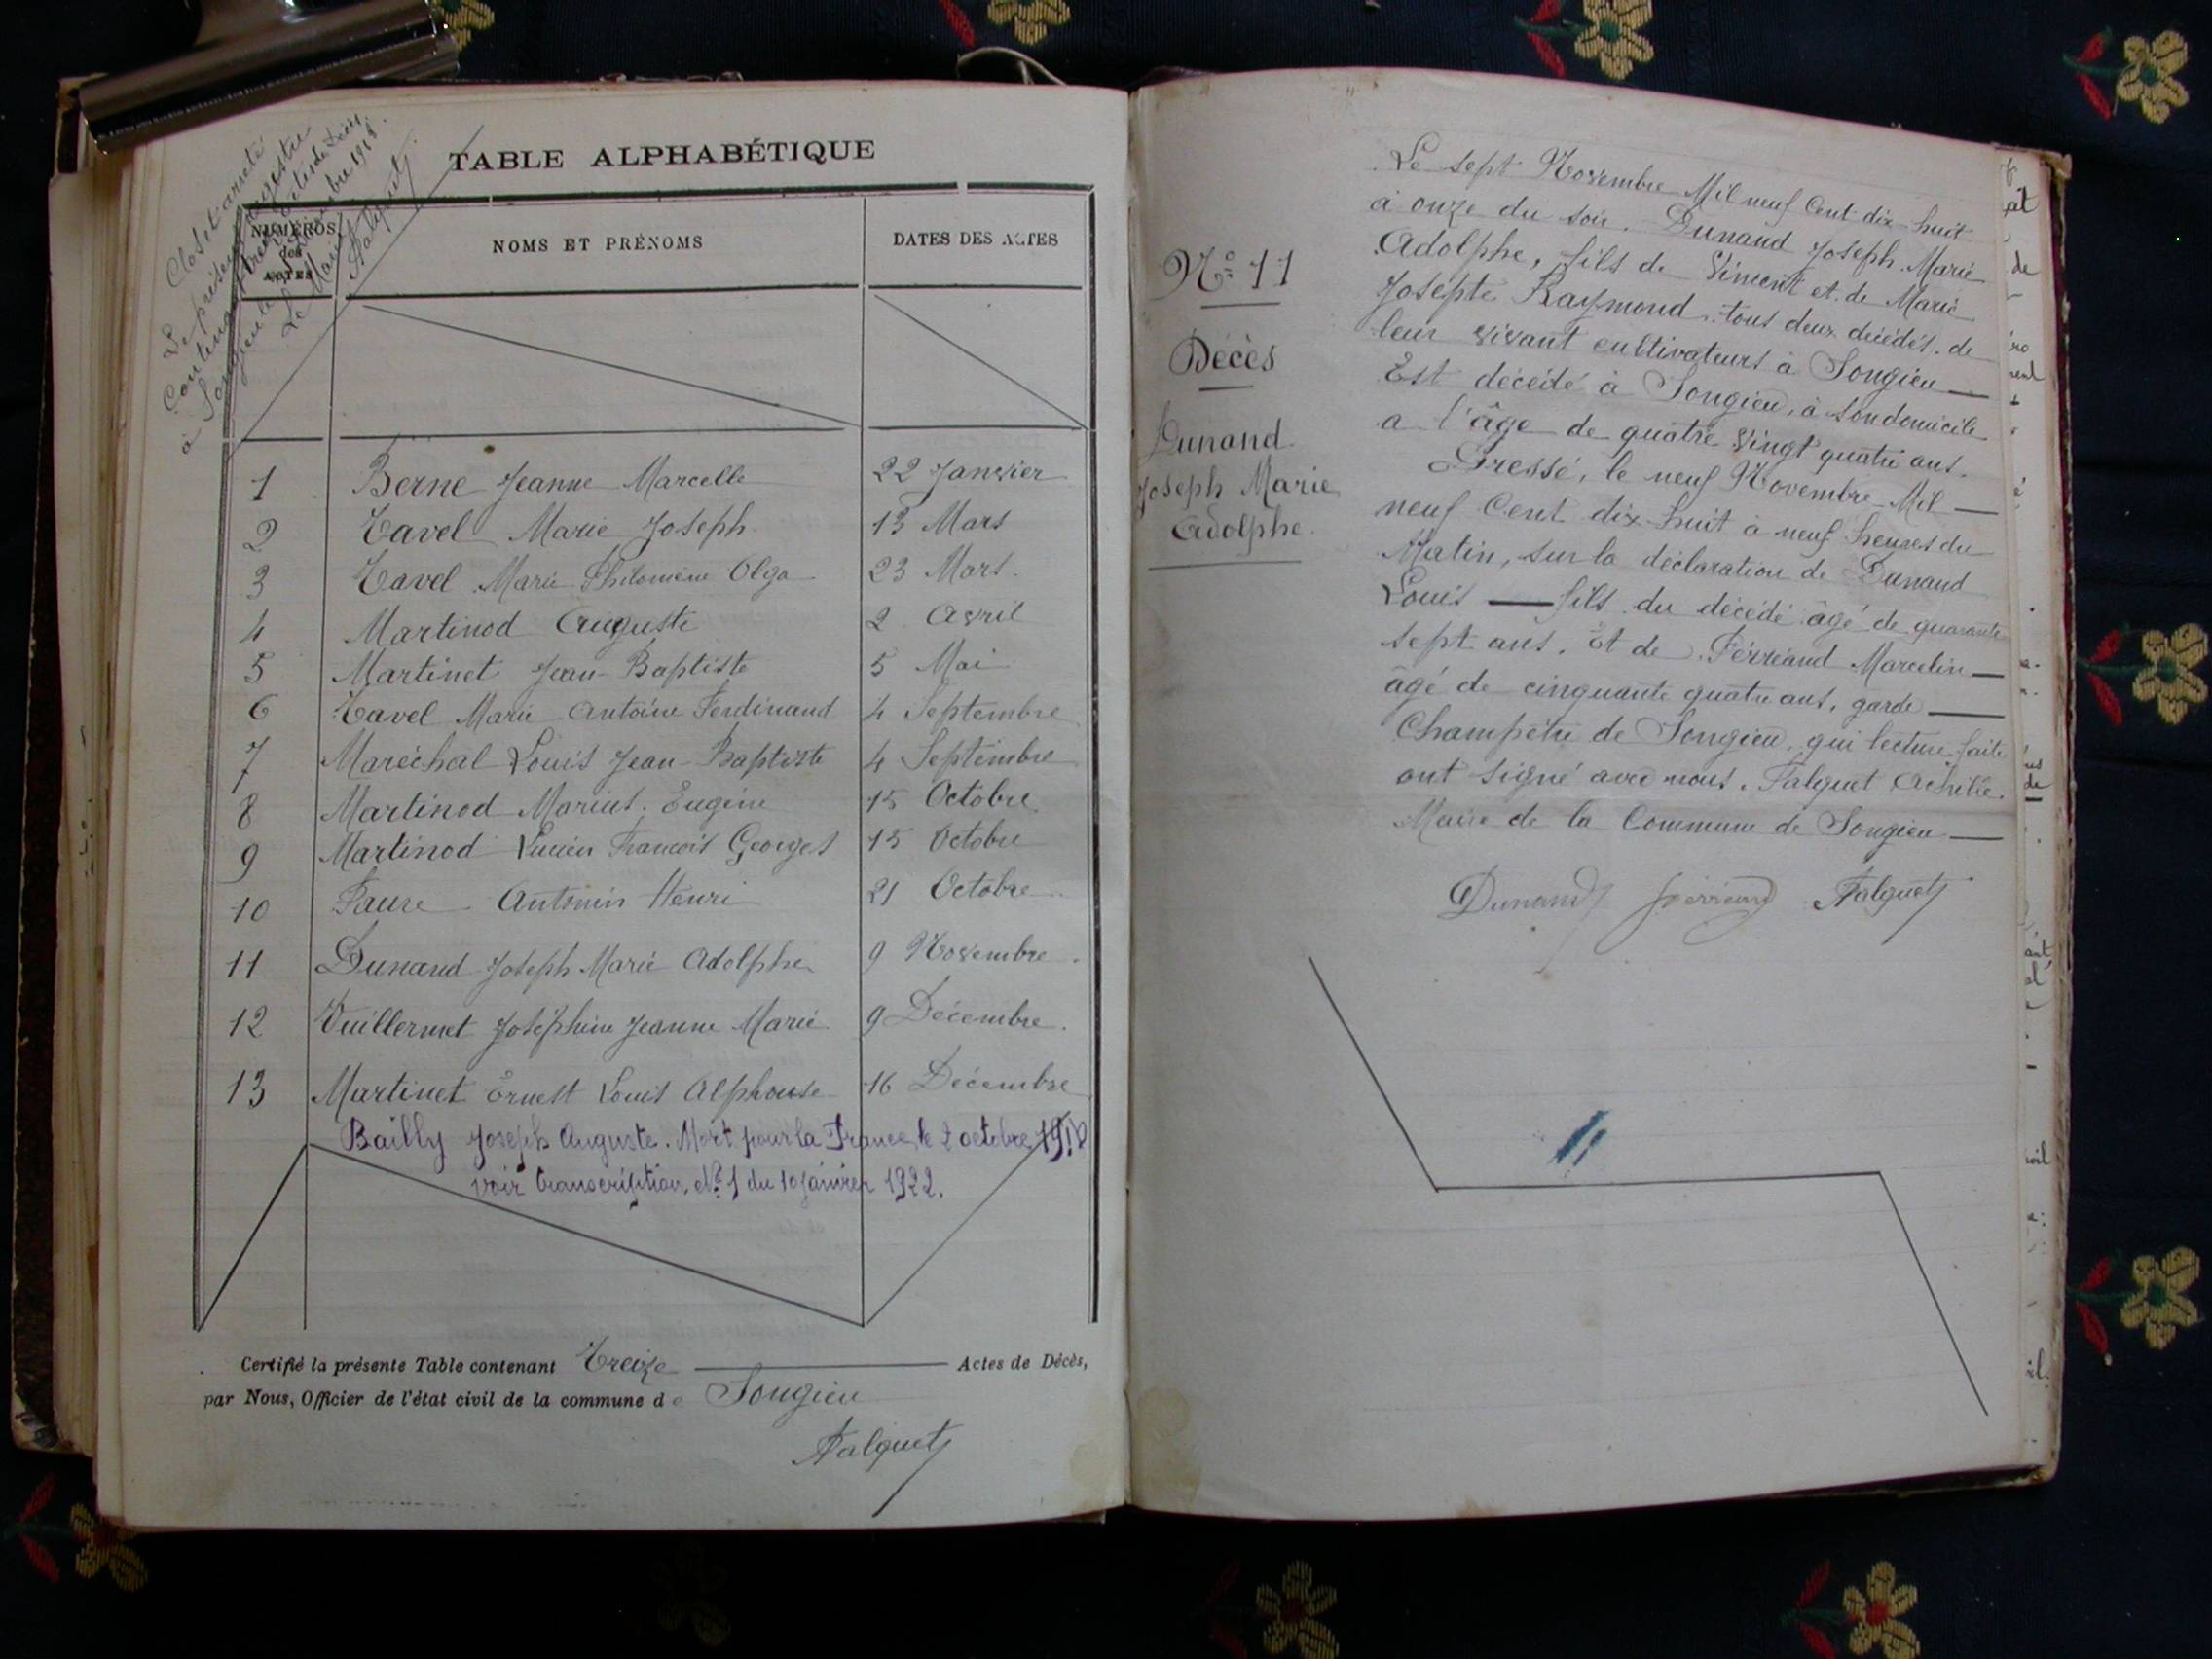 Clos et arrêté
Le présent registre
Contenant treize actes de Décès.
à Songieu le Décembre 1918.
Le Maire
Falquet
TABLE ALPHABÉTIQUE
NUMÉROS des ACTES
NOMS ET PRÉNOMS
DATES DES ACTES
1 Berne Jeanne Marcelle 22 Janvier
2 Tavel Marie Joseph 13 Mars
3 Tavel Marie Philomène Olga 23 Mars.
4 Martinod Auguste 2 Avril
5 Martinet Jean-Baptiste 5 Mai
6 Tavel Marie Antoine Ferdinand 4 Septembre
7 Maréchal Louis Jean-Baptiste 4 Septembre
8 Martinod Marius Eugène 15 Octobre
9 Martinod Lucien François Georges 15 Octobre
10 Faure Antonin Henri 21 Octobre
11 Dunand Joseph Marie Adolphe 9 Novembre.
12 Vuillermet Joséphine Jeanne Marie 9 Décembre.
13 Martinet Ernest Louis Alphonse 16 Décembre
Bailly Joseph Auguste. Mort pour la France le 2 octobre 1918
voir transcription Nº 1 du 10 janvier 1922.
Certifié la présente Table contenant Treize Actes de Décès,
par Nous, Officier de l'état civil de la commune de Songieu
Falquet
Nº 11
Décès
Dunand
Joseph Marie
Adolphe.
Le sept Novembre Mil neuf Cent dix-huit
à onze du soir. Dunand Joseph Marie
Adolphe, fils de Vincent et de Marie
Josepte Raymond, tous deux décédés. de
leur vivant cultivateurs à Songieu
Est décédé à Songieu, à son domicile
a l'âge de quatre vingt quatre ans.
Dressé, le neuf Novembre Mil
neuf Cent dix-huit à neuf heures du
Matin, sur la déclaration de Dunand
Louis fils du décédé âgé de quarante
sept ans. Et de Férréand Marcelin
âgé de cinquante quatre ans, garde
Champêtre de Songieu, qui lecture faite
ont signé avec nous. Falquet Achille.
Maire de la Commune de Songieu
Dunand Férréand Falquet
11